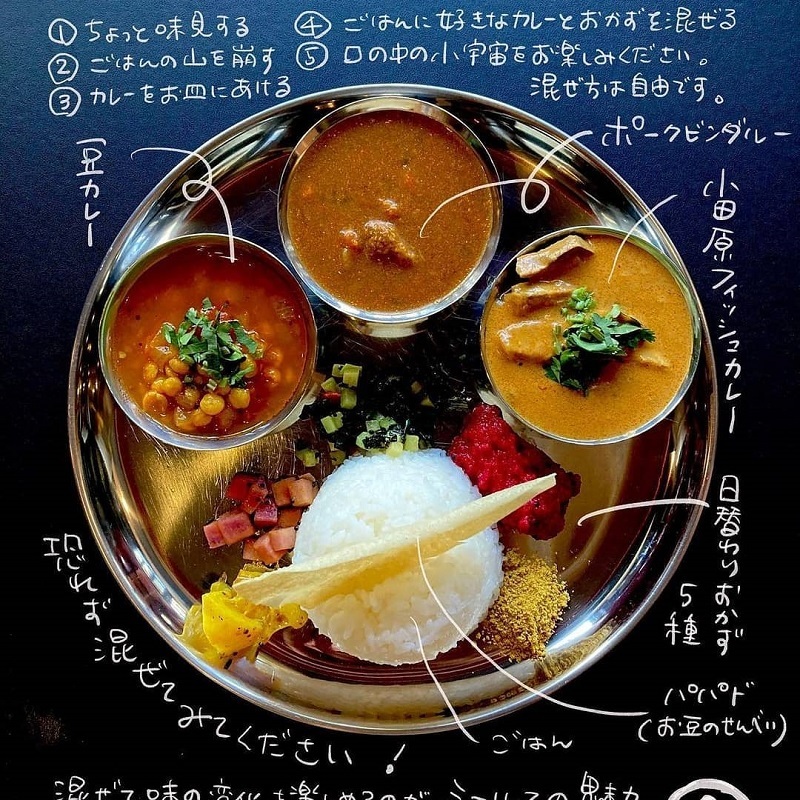 ① ちょっと味見する
② ごはんの山を崩す
③ カレーをお皿にあける
④ ごはんに好きなカレーとおかずを混ぜる
⑤ 口の中の小宇宙をお楽しみください。
混ぜ方は自由です。
豆カレー
ポークビンダルー
小田原フィッシュカレー
日替わりおかず
5種
パパド
(お豆のせんべい)
ごはん
恐れず混ぜてみてください!
混ぜて味の変化を楽しめるのがミールスの魅力